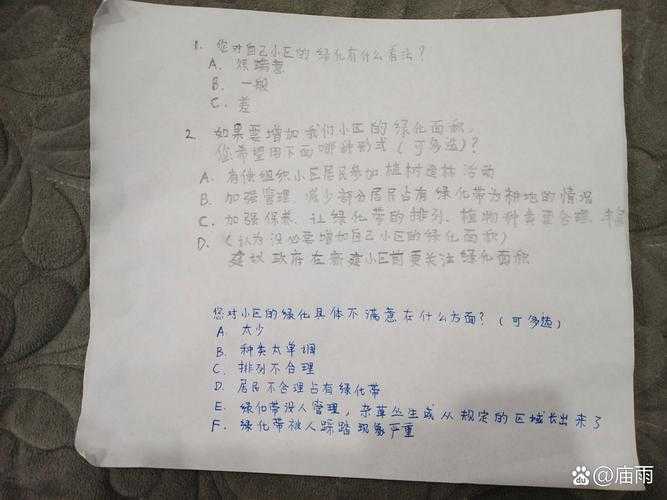 1. 您对自己小区的绿化有什么看法?
A. 很满意
B. 一般
C. 差
2. 如果要增加我们小区的绿化面积,
您希望用下面哪种形式(可多选)?
A. 有偿组织小区居民参加植树造林活动
B. 加强管理,减少部分居民占有绿化带为耕地的情况
C. 加强保养、让绿化带的排列、植物种类更合理、丰富
D. (认为没必要增加自己小区的绿化面积)
建议政府在新建小区前更关注绿化面积
您对小区的绿化具体不满意在什么方面?(可多选)
A. 太少
B. 种类太单调
C. 排列不合理
D. 居民不合理占有绿化带
E. 绿化带没人管理,杂草丛生或从规定的区域长出来了
F. 绿化带被人踩踏现象严重
Bai百度@庙雨